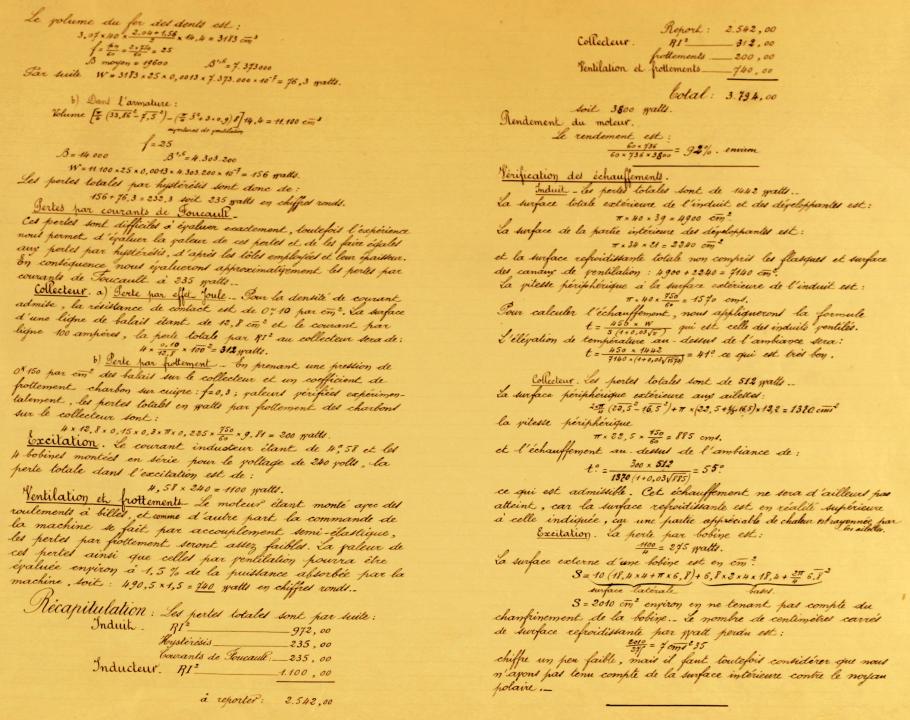 Le volume du fer des dents est :
3,07 × 40 × (2.04+1.56)/2 × 14,4 = 3183 cm³
f = 750/60 = 2×750/60 = 25
B moyen = 19600 B¹·⁶ = 7.373000
Par suite W = 3183 × 25 × 0,0013 × 7.373.000 × 10⁻⁷ = 76,3 watts.
b) Dans l'armature :
Volume
14,4 = 11.100 cm³
f = 25
B = 14.000 B¹·⁶ = 4.303.200
W = 11.100 × 25 × 0,0013 × 4.303.200 × 10⁻⁷ = 156 watts.
Les pertes totales par hystérésis sont donc de :
156 + 76,3 = 232,3 soit 235 watts en chiffres ronds.
Pertes par courants de Foucault.
Ces pertes sont difficiles à évaluer exactement, toutefois l'expérience
nous permet d'évaluer la valeur de ces pertes et de les faire égales
aux pertes par hystérésis, d'après les tôles employées et leur épaisseur.
En conséquence nous évaluerons approximativement les pertes par
courants de Foucault à 235 watts.
Collecteur. a) Perte par effet Joule. Pour la densité de courant
admise, la résistance de contact est de par cm². La surface
d'une ligne de balais étant de 12,8 cm² et le courant par
ligne 100 ampères, la perte totale par RI² au collecteur sera de :
4 × 0,10/12,8 × 100² = 312 watts.
b) Perte par frottement. En prenant une pression de
0ᵏ150 par cm² des balais sur le collecteur et un coefficient de
frottement charbon sur cuivre : f = 0,3 ; valeurs vérifiées expérimen-
talement, les pertes totales en watts par frottement des charbons
sur le collecteur sont :
4 × 12,8 × 0,15 × 0,3 × π × 0,225 × 750/60 × 9,81 = 200 watts.
Excitation. Le courant inducteur étant de 4ᵃ,58 et les
4 bobines montées en série pour le voltage de 240 volts. la
perte totale dans l'excitation est de :
4,58 × 240 = 1100 watts.
Ventilation et frottements. Le moteur étant monté avec des
roulements à billes, et comme d'autre part la commande de
la machine se fait par accouplement semi-élastique,
les pertes par frottement seront assez faibles. La valeur de
ces pertes ainsi que celles par ventilation pourra être
évaluée environ à 1,5 % de la puissance absorbée par la
machine, soit : 490,5 × 1,5 = 740 watts en chiffres ronds.
Récapitulation : Les pertes totales sont par suite :
Induit. RI² 972,00
Hystérésis 235,00
Courants de Foucault 235,00
Inducteur. RI² 1.100,00
à reporter : 2.542,00
Report : 2.542,00
Collecteur. RI² 312,00
frottements 200,00
Ventilation et frottements 740,00
Total : 3.794,00
soit 3800 watts.
Rendement du moteur.
Le rendement est :
60×736/60×736×3800 = 92% environ
Vérification des échauffements.
Induit. Les pertes totales sont de 1442 watts.
La surface totale extérieure de l'induit et des développantes est :
π × 40 × 39 = 4900 cm²
La surface de la partie intérieure des développantes est :
π × 34 × 21 = 2240 cm²
et la surface refroidissante totale non compris les flasques et surface
des canaux de ventilation : 4900 + 2240 = 7140 cm².
La vitesse périphérique à la surface extérieure de l'induit est :
π × 40 × 750/60 = 1570 cms.
Pour calculer l'échauffement, nous appliquerons la formule
t = 450 × W / S(1+0,03√v) qui est celle des induits ventilés.
L'élévation de température au-dessus de l'ambiance sera :
t = 450 × 1442 / 7140 × (1+0,03√1570) = 41° ce qui est très bon.
Collecteur. Les pertes totales sont de 512 watts.
La surface périphérique extérieure aux ailettes :
12,2 = 1370 cm²
la vitesse périphérique
π × 22,5 × 750/60 = 885 cms.
et l'échauffement au-dessus de l'ambiance de :
t° = 300 × 512 / 1370 (1+0,03√885) = 55°
ce qui est admissible. Cet échauffement ne sera d'ailleurs pas
atteint, car la surface refroidissante est en réalité supérieure
à celle indiquée, car une partie appréciable de chaleur est rayonnée par
les ailettes.
Excitation. La perte par bobine est :
1100/4 = 275 watts.
La surface externe d'une bobine est en cm² :
S = 10 (18,4 × 4 + π × 6,8) + 6,8 × 2 × 4 × 18,4 + 2π/4 6,8²
surface latérale bases.
S = 2010 cm² environ en ne tenant pas compte du
chanfreinement de la bobine. Le nombre de centimètres carrés
de surface refroidissante par watt perdu est :
2010/275 = 7 cm² 35
chiffre un peu faible, mais il faut toutefois considérer que nous
n'avons pas tenu compte de la surface intérieure contre le noyau
polaire.